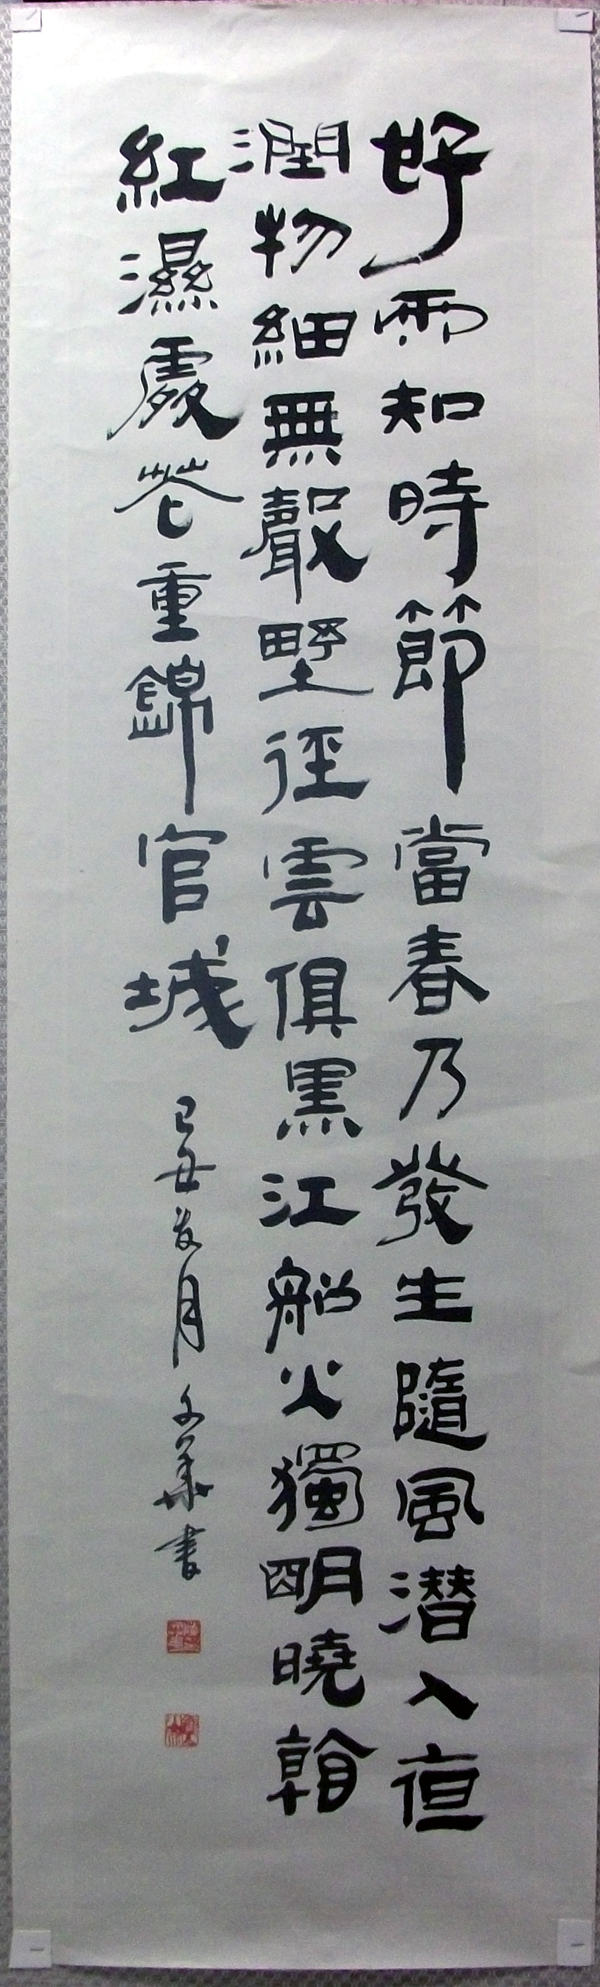 好雨知時節當春乃發生隨風潜入夜
潤物細無聲野徑雲俱黑江船火獨明曉看
紅濕處花重錦官城
己丑夏月文華書